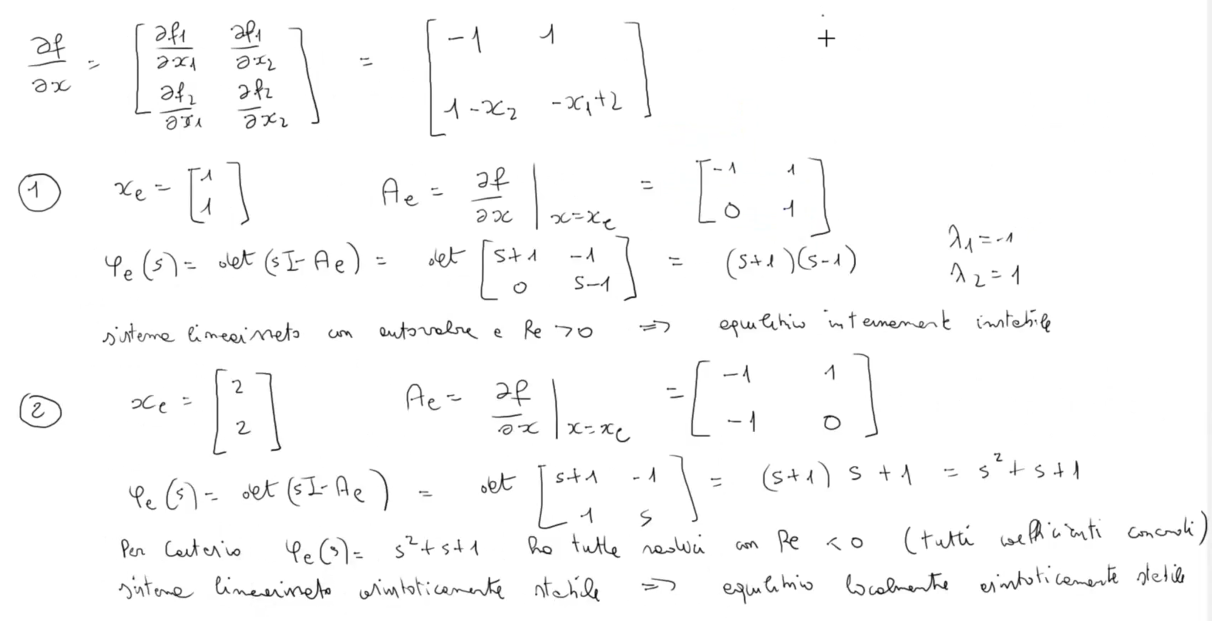 ∂f/∂x = [ ∂f1/∂x1 ∂f1/∂x2 ; ∂f2/∂x1 ∂f2/∂x2 ] = [ -1 1 ; 1-x2 -x1+2 ]
① xe = [ 1 ; 1 ] Ae = ∂f/∂x |x=xe = [ -1 1 ; 0 1 ]
φe(s) = det (sI-Ae) = det [ s+1 -1 ; 0 s-1 ] = (s+1)(s-1) λ1=-1 λ2=1
sistema linearizzato con autovalore a Re >0 ⇒ equilibrio internamente instabile
② xe = [ 2 ; 2 ] Ae = ∂f/∂x |x=xe = [ -1 1 ; -1 0 ]
φe(s) = det (sI-Ae) = det [ s+1 -1 ; 1 s ] = (s+1) s + 1 = s²+s+1
Per Cartesio φe(s) = s²+s+1 ha tutte radici con Re <0 (tutti coefficienti concordi)
sistema linearizzato asintoticamente stabile ⇒ equilibrio localmente asintoticamente stabile